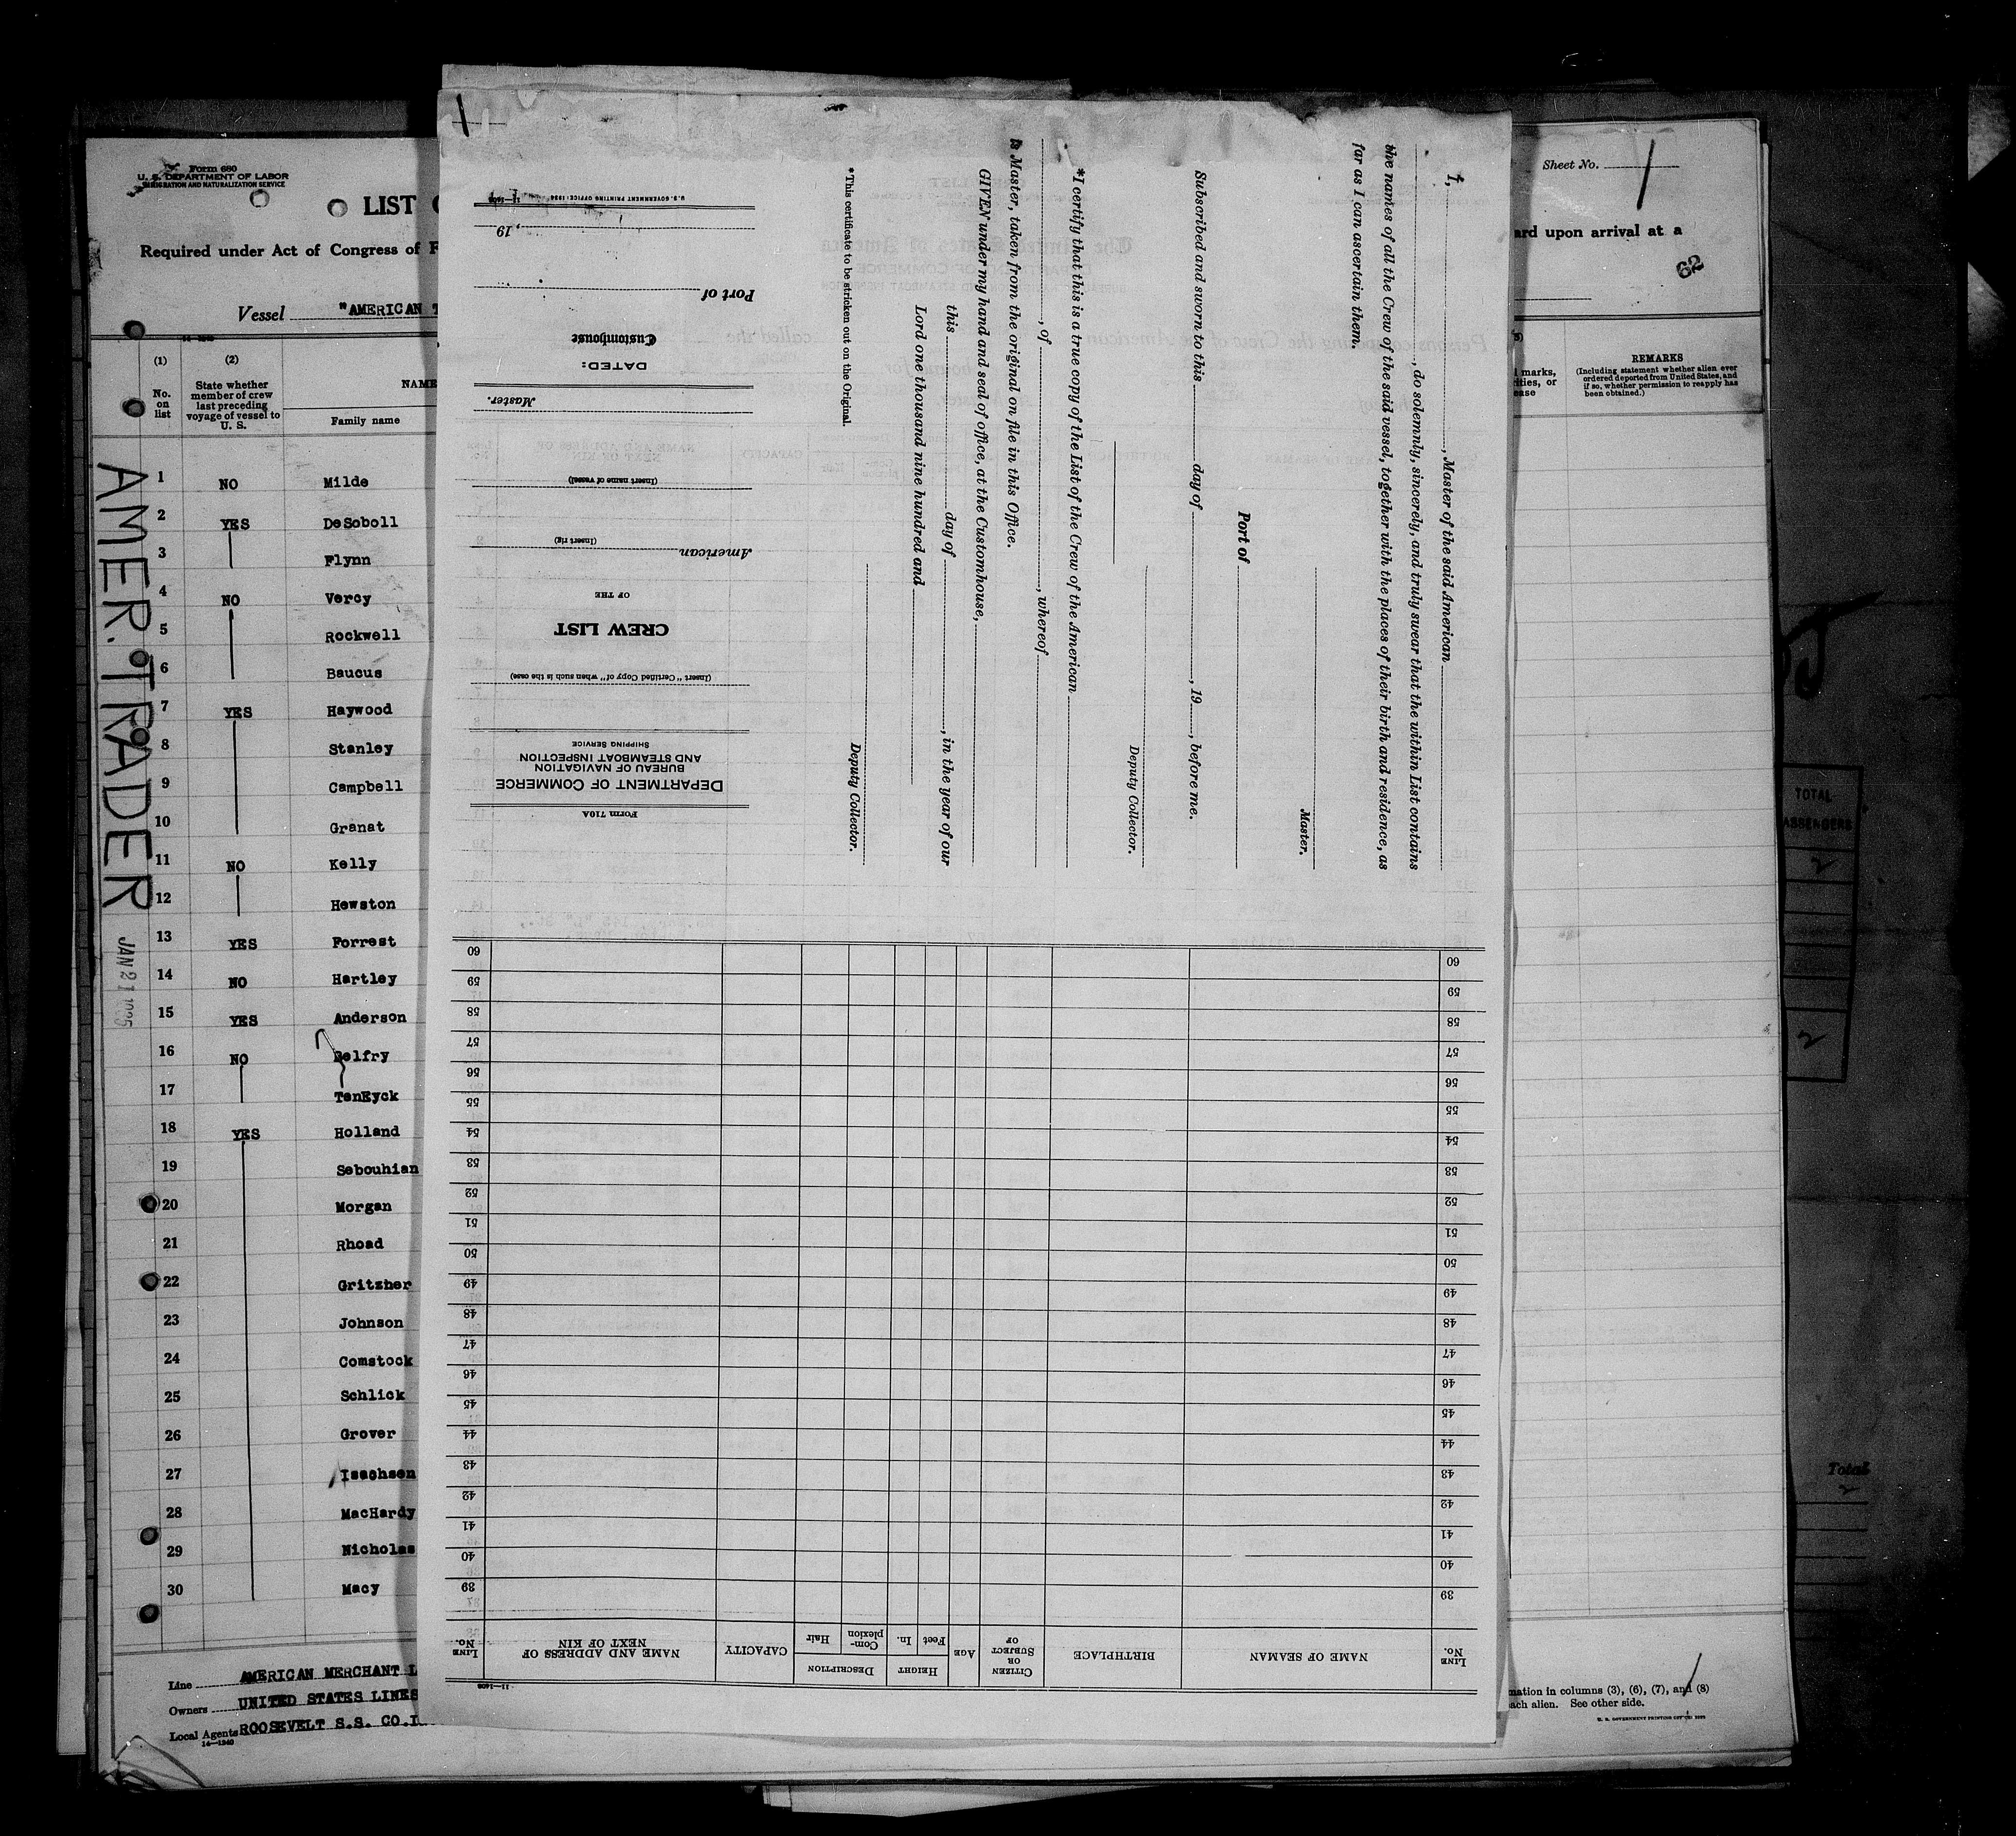 Form 680
U. S. DEPARTMENT OF LABOR
IMMIGRATION AND NATURALIZATION SERVICE
LIST
Required under Act of Congress of F
Vessel "AMERICAN T
(1)
No. on list
(2)
State whether member of crew last preceding voyage of vessel to U. S.
NAME
Family name
1 NO Milde
2 YES DeSoboll
3 Flynn
4 NO Vercy
5 Rockwell
6 Baucus
7 YES Haywood
8 Stanley
9 Campbell
10 Granat
11 NO Kelly
12 Hewston
13 YES Forrest
14 NO Hartley
15 YES Anderson
16 NO Belfry
17 TenEyck
18 YES Holland
19 Sebouhian
20 Morgan
21 Rhoad
22 Gritzher
23 Johnson
24 Comstock
25 Schlick
26 Grover
27 Isachsen
28 MacHardy
29 Nicholas
30 Macy
AMER. TRADER
JAN 21 1935
Line AMERICAN MERCHANT L
Owners UNITED STATES LINES
Local Agents ROOSEVELT S.S. CO.I
14—1240
I, , Master of the said American
, do solemnly, sincerely, and truly swear that the within List contains
the names of all the Crew of the said vessel, together with the places of their birth and residence, as
far as I can ascertain them.
Master.
Port of
Subscribed and sworn to this day of , 19 , before me.
Deputy Collector.
*I certify that this is a true copy of the List of the Crew of the American
, of , whereof
is Master, taken from the original on file in this Office.
GIVEN under my hand and seal of office, at the Customhouse,
this day of , in the year of our
Lord one thousand nine hundred and
Deputy Collector.
*This certificate to be stricken out on the Original.
Form 710A
DEPARTMENT OF COMMERCE
BUREAU OF NAVIGATION
AND STEAMBOAT INSPECTION
SHIPPING SERVICE
(Insert "Certified Copy of" when such is the case)
CREW LIST
OF THE
American
(Insert rig)
(Insert name of vessel)
Master.
DATED:
Customhouse
Port of
, 19
U.S. GOVERNMENT PRINTING OFFICE: 1934
LINE No.
NAME OF SEAMAN
BIRTHPLACE
CITIZEN OR SUBJECT OF
AGE
HEIGHT
Feet
In.
DESCRIPTION
Complexion
Hair
CAPACITY
NAME AND ADDRESS OF NEXT OF KIN
LINE No.
39 39
40 40
41 41
42 42
43 43
44 44
45 45
46 46
47 47
48 48
49 49
50 50
51 51
52 52
53 53
54 54
55 55
56 56
57 57
58 58
59 59
60 60
Sheet No. 1
ard upon arrival at a
62
marks,
ities, or
ease
REMARKS
(Including statement whether alien ever ordered deported from United States, and if so, whether permission to reapply has been obtained.)
mation in columns (3), (6), (7), and (8)
ach alien. See other side.
TOTAL
PASSENGERS
2
2
Total
2